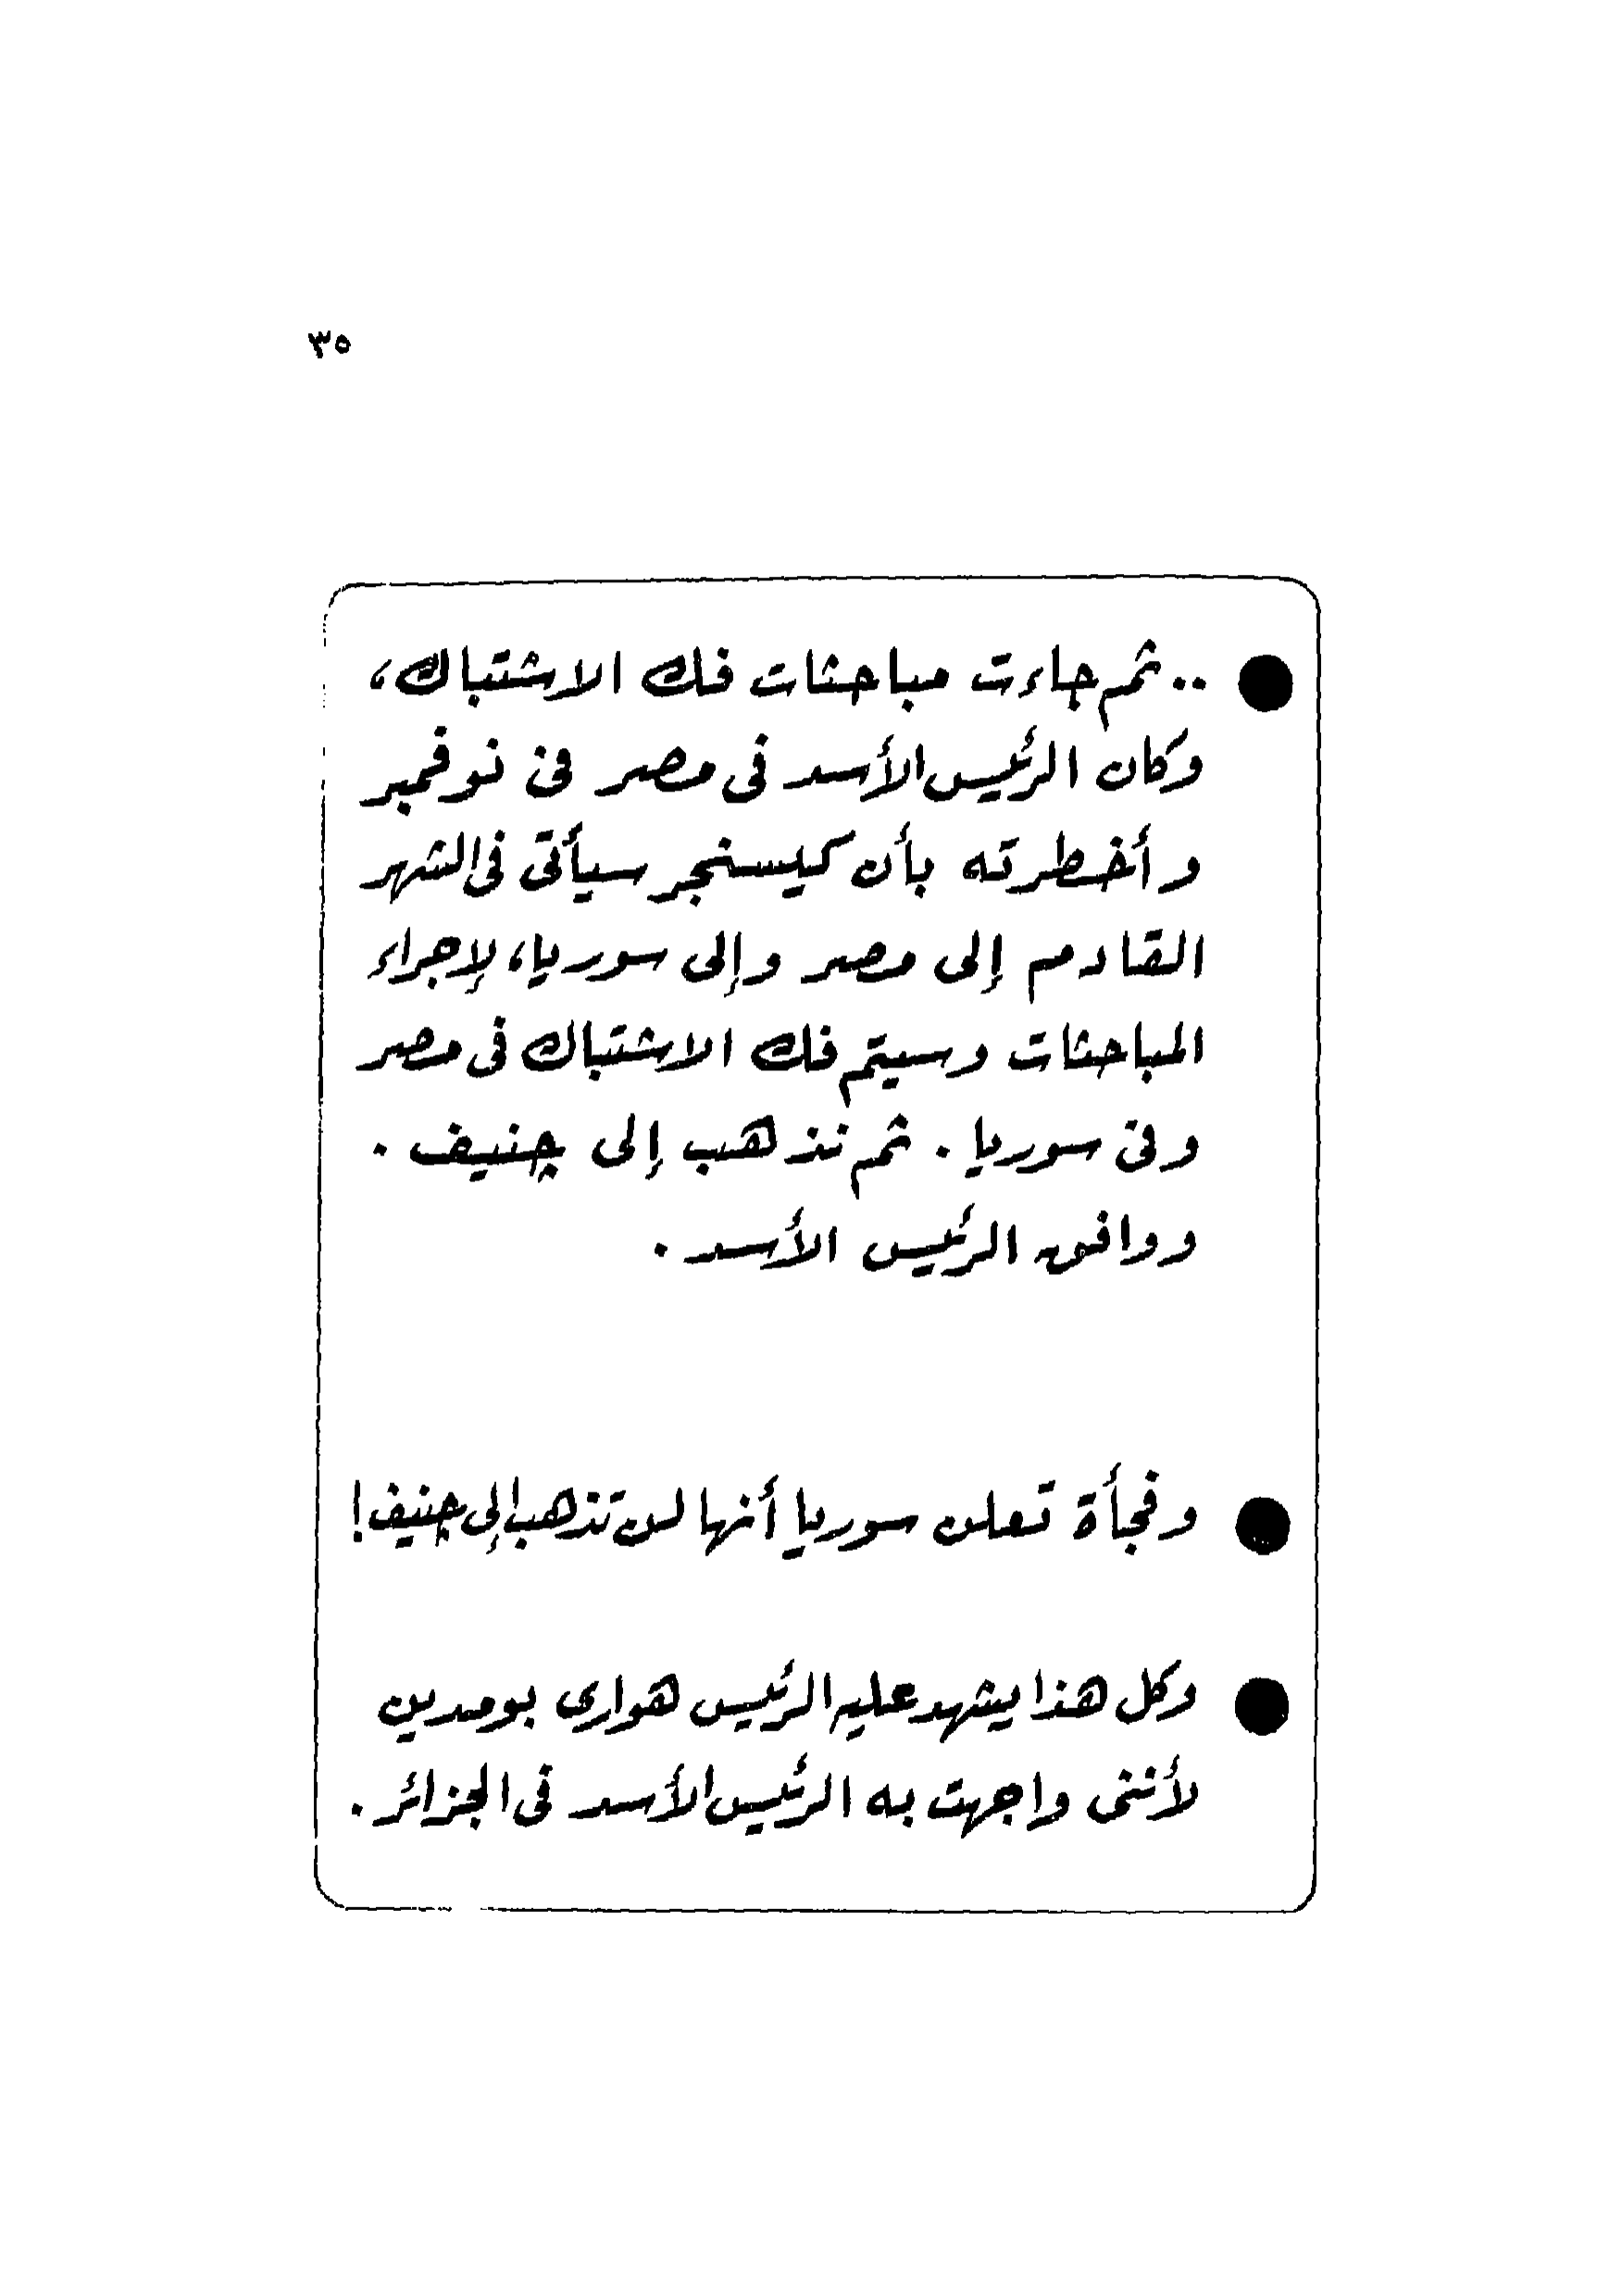 ٣٥
● .. ثم جاءت مباحثات فك الاشتباك،
وكان الرئيس الأسد فى مصر فى نوفمبر
وأخطرته بأن كيسنجر سيأتى فى الشهر
القادم إلى مصر وإلى سوريا، لإجراء
المباحثات وسيتم فك الاشتباك فى مصر
وفى سوريا . ثم نذهب إلى چنيف .
ووافق الرئيس الأسد .
● وفجأة تعلن سوريا أنها لن تذهب إلى چنيف !
● وكل هذا يشهد عليه الرئيس هوارى بومدين
لأننى واجهت به الرئيس الأسد فى الجزائر .